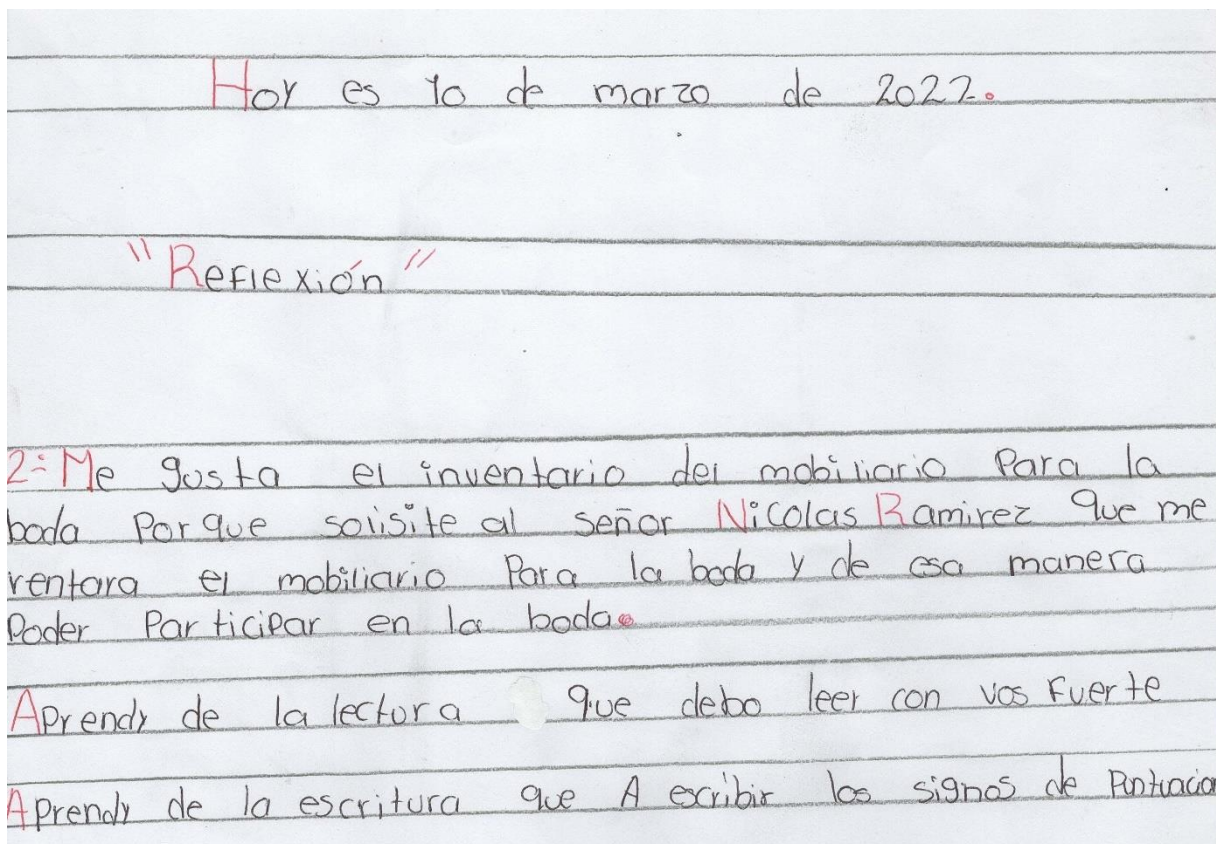 Hoy es 10 de marzo de 2022.
"Reflexión"
2:Me gusta el inventario del mobiliario Para la
boda Porque solisite al señor Nicolas Ramirez que me
rentara el mobiliario Para la boda y de esa manera
Poder Participar en la boda.
Aprendy de la lectora que debo leer con vos Fuerte
Aprendy de la escritura que A escribir los signos de Puntuacion